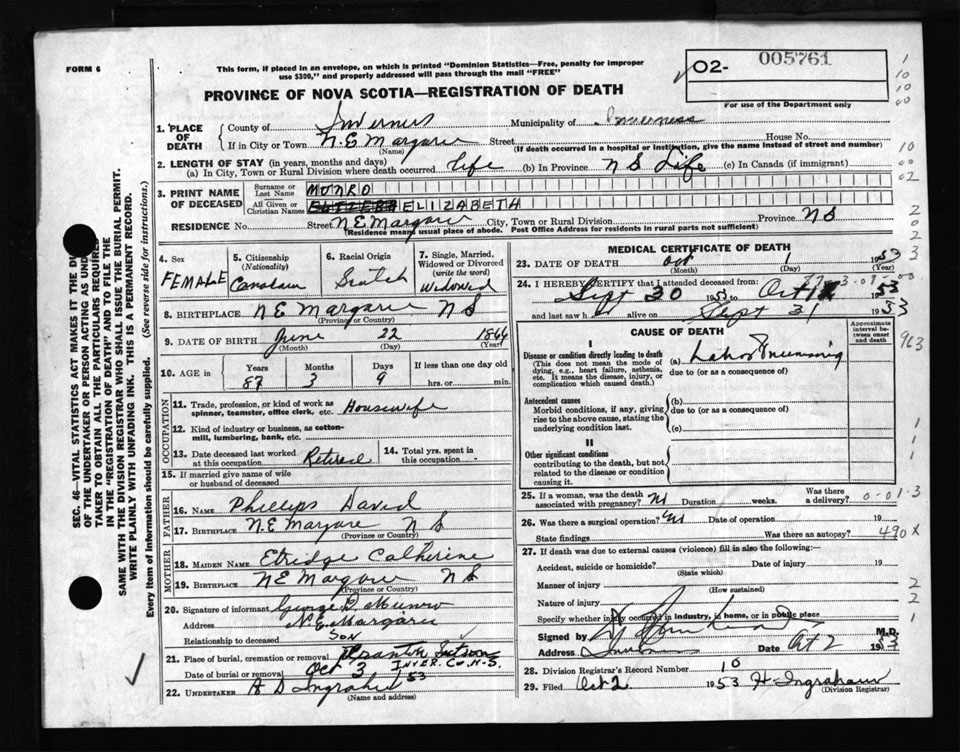 FORM 6
This form, if placed in an envelope, on which is printed "Dominion Statistics—Free, penalty for improper
use $300," and properly addressed will pass through the mail "FREE"
PROVINCE OF NOVA SCOTIA—REGISTRATION OF DEATH
O2- 005761
For use of the Department only
1. PLACE OF DEATH
County of Inverness Municipality of Inverness
If in City or Town N.E Margaree Street House No.
(Name) (If death occurred in a hospital or institution, give the name instead of street and number)
2. LENGTH OF STAY (in years, months and days)
(a) In City, Town or Rural Division where death occurred Life (b) In Province N S Life (c) In Canada (if immigrant)
3. PRINT NAME OF DECEASED
Surname or Last Name MUNRO
All Given or Christian Names ELIIZABETH
RESIDENCE No. Street N E Margaree City, Town or Rural Division Province N S
(Residence means usual place of abode. Post Office Address for residents in rural parts not sufficient)
4. Sex FEMALE
5. Citizenship (Nationality) Canadian
6. Racial Origin Scotch
7. Single, Married, Widowed or Divorced (write the word) Widowed
8. BIRTHPLACE N E Margaree N S
(Province or Country)
9. DATE OF BIRTH June 22 1866
(Month) (Day) (Year)
10. AGE in Years 87 Months 3 Days 9 If less than one day old hrs. or min.
OCCUPATION
11. Trade, profession, or kind of work as spinner, teamster, office clerk, etc. Housewife
12. Kind of industry or business, as cotton-mill, lumbering, bank, etc.
13. Date deceased last worked at this occupation Retired
14. Total yrs. spent in this occupation
15. If married give name of wife or husband of deceased
FATHER
16. Name Phillips David
17. BIRTHPLACE N.E Margaree N S
(Province or Country)
MOTHER
18. MAIDEN NAME Etridge Catherine
19. BIRTHPLACE N E Margaree N S
(Province or Country)
20. Signature of informant George P. Munro
Address N E Margaree
Relationship to deceased Son
21. Place of burial, cremation or removal
INVER. CO. N.S.
Date of burial or removal Oct 3 53
22. UNDERTAKER A D Ingraham
(Name and address)
MEDICAL CERTIFICATE OF DEATH
23. DATE OF DEATH Oct 1 1953
(Month) (Day) (Year)
24. I HEREBY CERTIFY that I attended deceased from:
Sept 20 1953 to Oct 1 1953
and last saw h alive on Sept 31 1953
CAUSE OF DEATH
Approximate interval between onset and death
I
Disease or condition directly leading to death
(This does not mean the mode of dying, e.g., heart failure, asthenia, etc. It means the disease, injury, or complication which caused death.)
(a) Lobar Pneumonia
due to (or as a consequence of)
Antecedent causes
Morbid conditions, if any, giving rise to the above cause, stating the underlying condition last.
(b)
due to (or as a consequence of)
(c)
II
Other significant conditions
contributing to the death, but not related to the disease or condition causing it.
25. If a woman, was the death associated with pregnancy? Duration weeks. Was there a delivery?
26. Was there a surgical operation? Date of operation 19
State findings Was there an autopsy?
490 X
27. If death was due to external causes (violence) fill in also the following:—
Accident, suicide or homicide? Date of injury 19
(State which)
Manner of injury
(How sustained)
Nature of injury
Specify whether injury occurred in industry, in home, or in public place
Signed by M.D.
Address Date Oct 2 1953
28. Division Registrar's Record Number 10
29. Filed Oct 2 1953 H Ingraham
(Division Registrar)
SEC. 46—VITAL STATISTICS ACT MAKES IT THE
OF THE UNDERTAKER OR PERSON ACTING AS UND
TAKER TO OBTAIN ALL THE PARTICULARS REQUIRE
IN THE "REGISTRATION OF DEATH" AND TO FILE THE
SAME WITH THE DIVISION REGISTRAR WHO SHALL ISSUE THE BURIAL PERMIT.
WRITE PLAINLY WITH UNFADING INK. THIS IS A PERMANENT RECORD.
Every item of information should be carefully supplied. (See reverse side for instructions.)